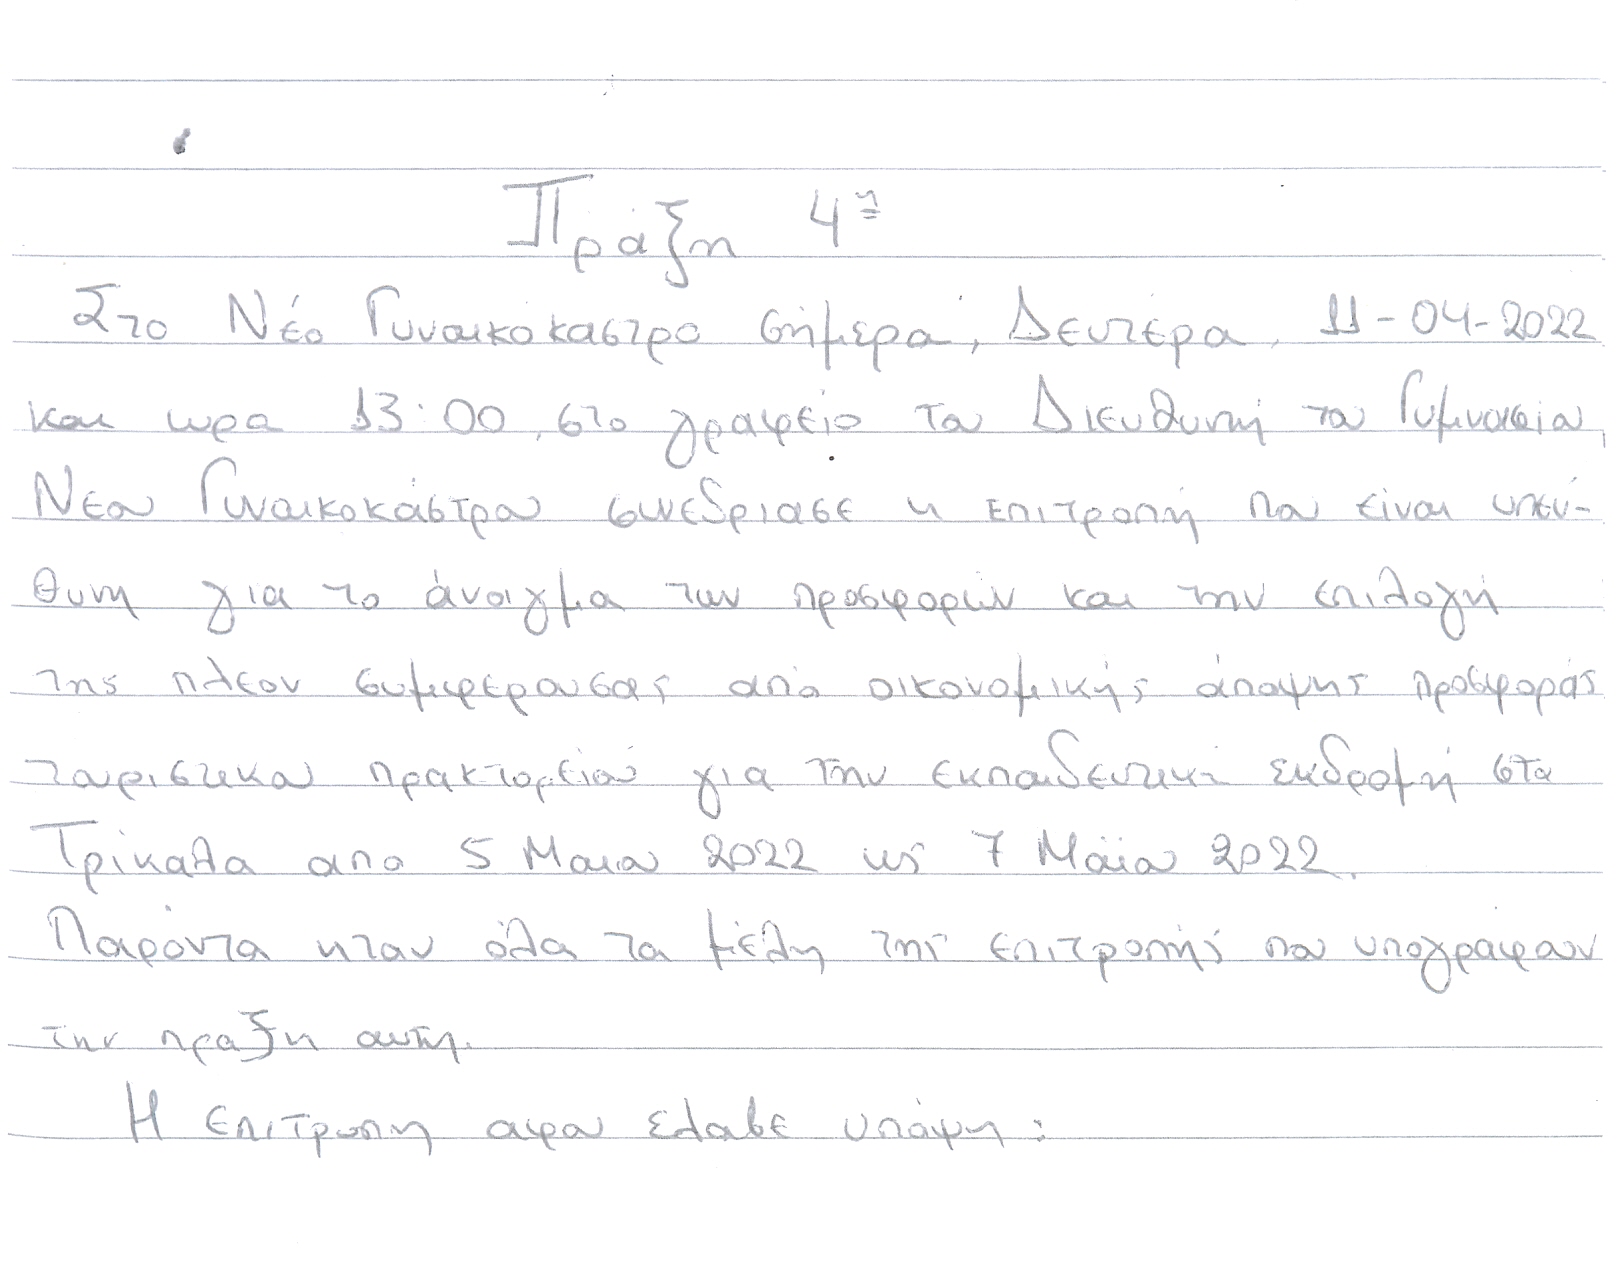 Πράξη 4η
Στο Νέο Γυναικοκαστρο σήμερα, Δευτέρα, 11-04-2022
και ωρα 13:00, στο γραφείο του Διευθυντή του Γυμνασίου
Νέου Γυναικοκάστρου συνεδριασε η επιτροπή που είναι υπεύ-
θυνη για το άνοιγμα των προσφορών και την επιλογή
της πλέον συμφέρουσας από οικονομικής άποψης προσφοράς
τουριστικου πρακτορείου για την εκπαιδευτική εκδρομή στα
Τρίκαλα απο 5 Μαιου 2022 ως 7 Μαϊου 2022.
Παρόντα ηταν όλα τα μέλη της επιτροπής που υπογράφουν
την πραξη αυτη.
Η επιτροπη αφου έλαβε υπόψη: